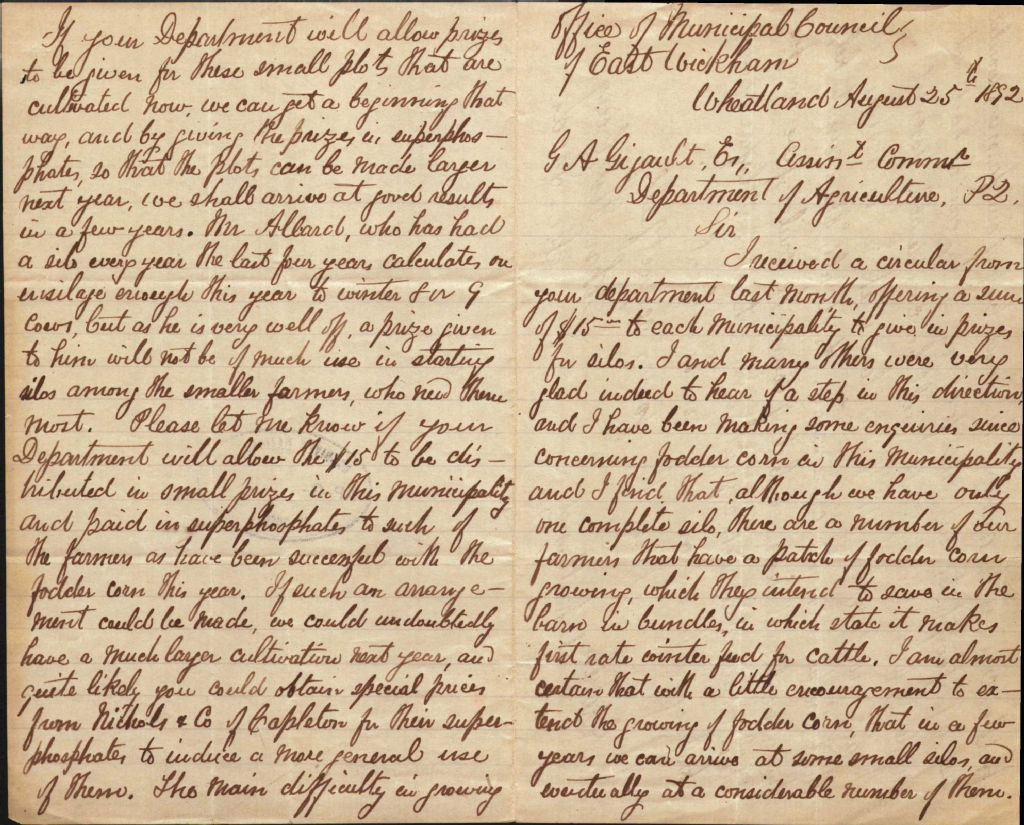 Office of Municipal Council
of East Wickham
Wheatland August 25th 1892
G A Gigault, Esq, Assist Commr
Department of Agriculture, P2.
Sir
I received a circular from
your department last month, offering a sum
of $15 to each municipality to give in prizes
for silos. I and many others were very
glad indeed to hear of a step in this direction,
and I have been making some enquiries since
concerning fodder corn in this municipality
and I find that, although we have only
one complete silo, there are a number of our
farmers that have a patch of fodder corn
growing, which they intend to save in the
barn in bundles, in which state it makes
first rate winter feed for cattle. I am almost
certain that with a little encouragement to ex-
tend the growing of fodder corn, that in a few
years we can arrive at some small silos, and
eventually at a considerable number of them.
If your Department will allow prizes
to be given for these small plots that are
cultivated now, we can get a beginning that
way, and by giving the prizes in superphos-
phates, so that the plots can be made larger
next year, we shall arrive at good results
in a few years. Mr Allard, who has had
a silo every year the last four years calculates on
ensilage enough this year to winter 8 or 9
cows, but as he is very well off, a prize given
to him will not be of much use in starting
silos among the smaller farmers, who need them
most. Please let me know if your
Department will allow the $15 to be dis-
tributed in small prizes in this municipality
and paid in superphosphates to such of
the farmers as have been successful with the
fodder corn this year. If such an arrange-
ment could be made, we could undoubtedly
have a much larger cultivation next year, and
quite likely you could obtain special prices
from Nichols & Co of Capleton for their super-
phosphates to induce a more general use
of them. The main difficulty in growing